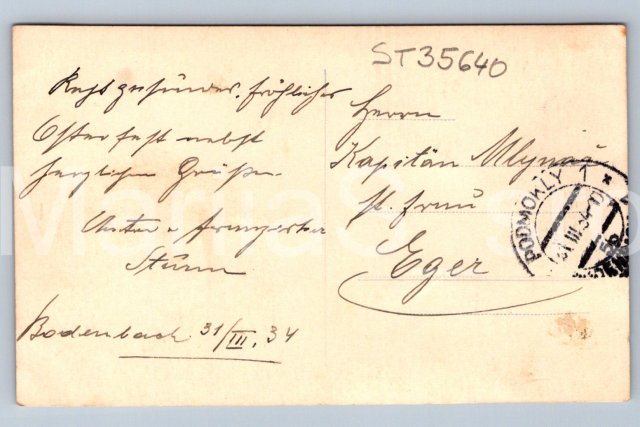 ST35640
Recht gesundes, fröhliches
Osterfest nebst
herzlichen Grüßen
Sturm
Bodenbach 31/III. 34
Herrn
Kapitän Mlynář
Eger
PODMOKLY 1
31.III.34